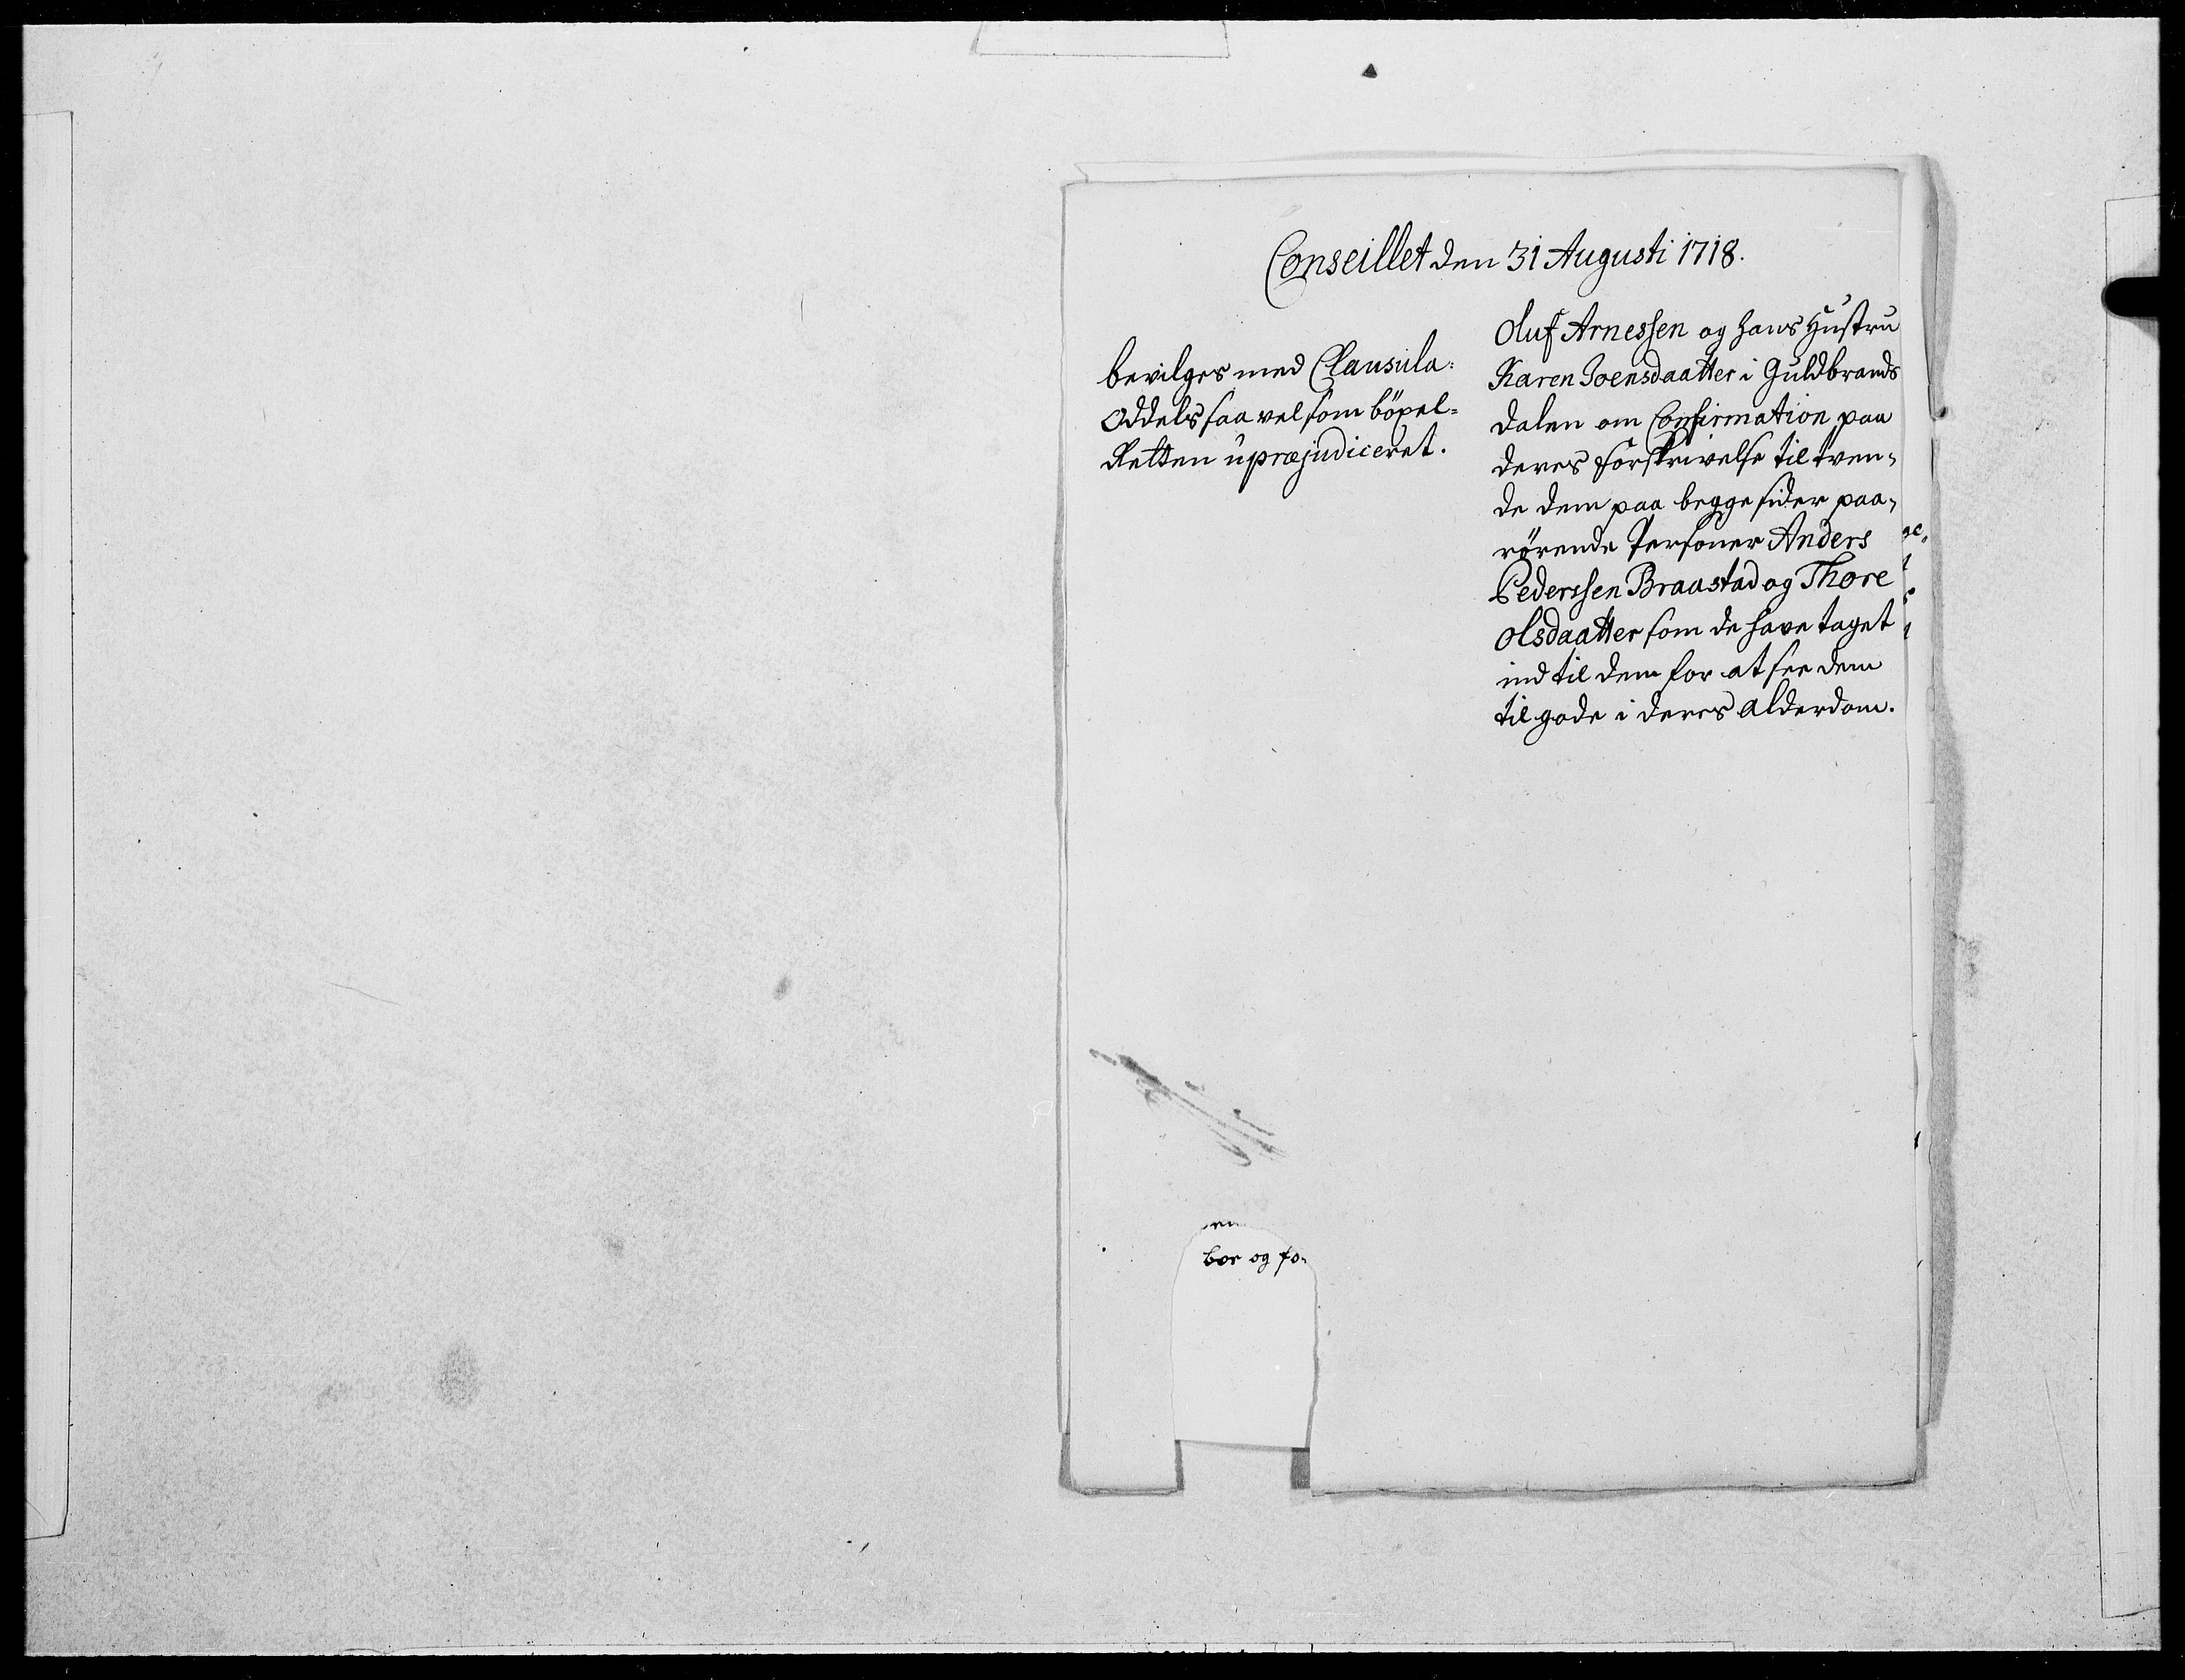 Conseillet den 31 Augusti 1718.
bevilges med Clausula:
Oddels saa vel som böxel-
Retten upræjudiceret.
Oluf Arnessen og hans Hustru
Karen Joensdaatter i Guldbrands
dalen om Confirmation paa
deres forskrivelse til tven-
de dem paa begge sider paa-
rörende Personer Anders
Pederssen Braastad og Thore
Olsdaatter som de have taget
ind til dem for at see dem
til gode i deres alderdom.
bor og fo-